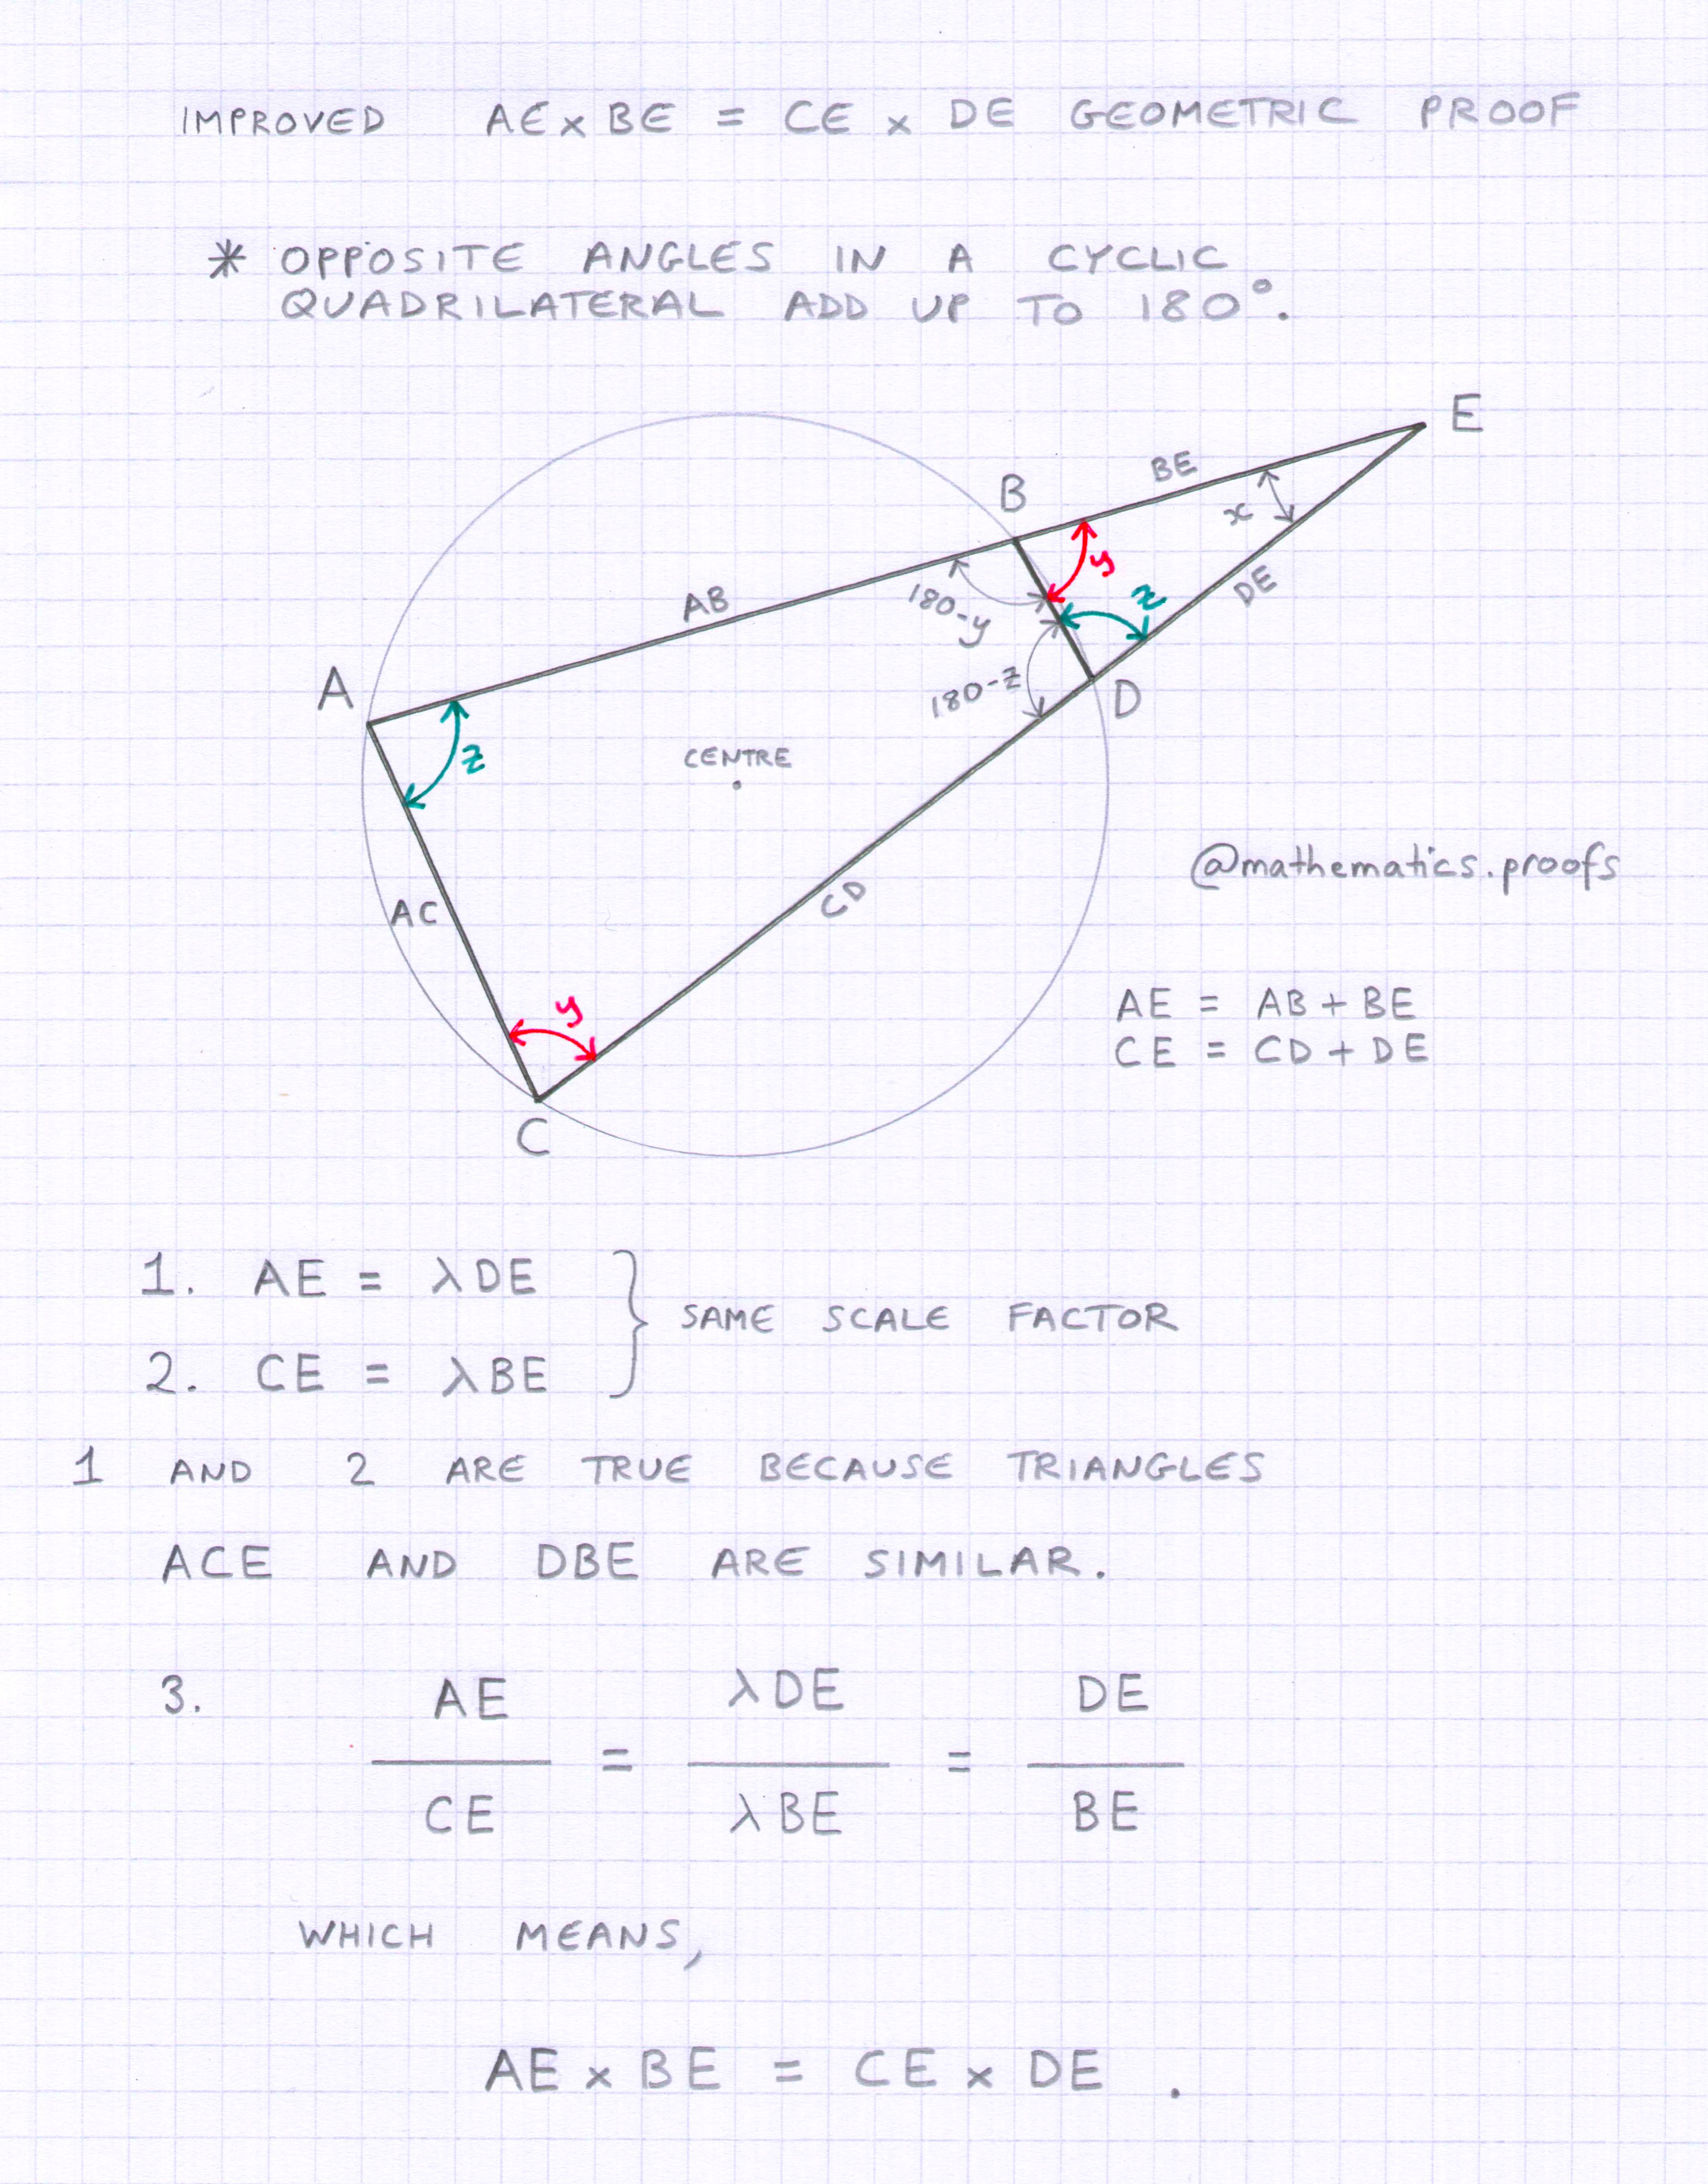 IMPROVED AE x BE = CE x DE GEOMETRIC PROOF
* OPPOSITE ANGLES IN A CYCLIC
QUADRILATERAL ADD UP TO 180°.
E
BE
B
x
y
AB
180-y
z
DE
A
180-z
D
z
CENTRE
@mathematics.proofs
AC
CD
y
AE = AB + BE
CE = CD + DE
C
1. AE = λDE
SAME SCALE FACTOR
2. CE = λBE
1 AND 2 ARE TRUE BECAUSE TRIANGLES
ACE AND DBE ARE SIMILAR.
3. AE = λDE = DE
CE λBE BE
WHICH MEANS,
AE x BE = CE x DE .